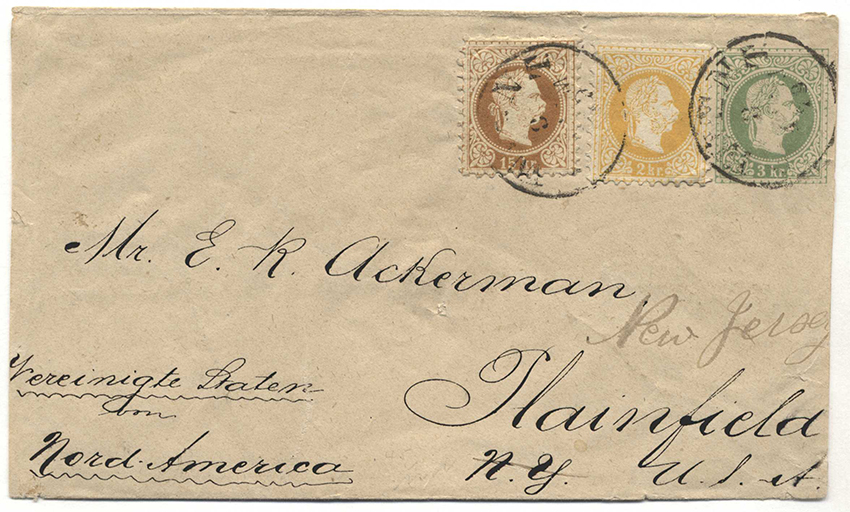 15 kr. 2 kr. 3 kr.
WIEN
Mr. E. K. Ackerman
New Jersey
Plainfield
N. Y. U. S. A.
Vereinigte Staten
von
Nord-America